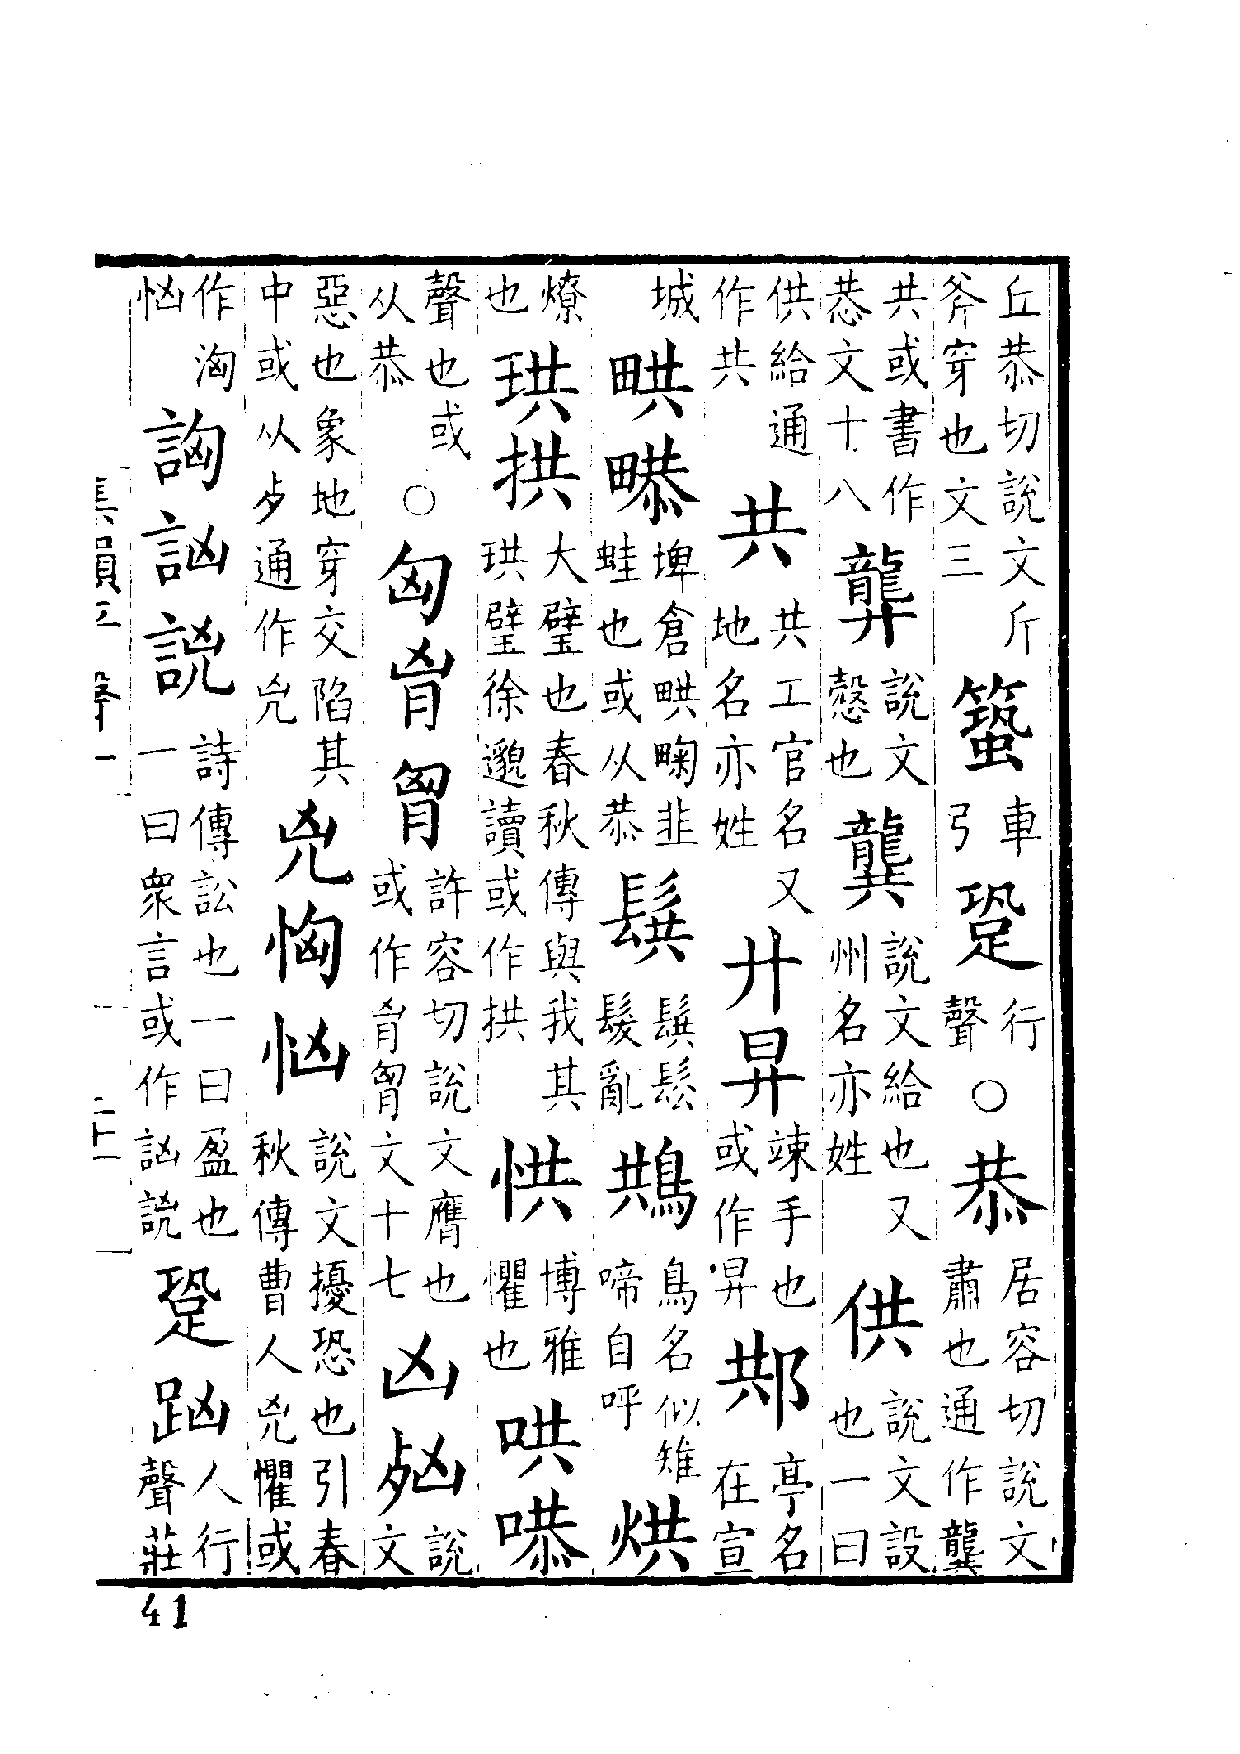 丘恭切說文斤斧穿也文三 車弓 跫 行聲 ○ 恭 居容切說文肅也通作龔
共或書作㳟文十八 龏 說文愨也 龔 說文給也又州名亦姓 供 說文設也一曰
供給通作共 共 共工官名又地名亦姓 廾 竦手也或作 亭名在宣
城 埤倉 韭蛙也或从恭 髸 髸鬆髮亂 鳥名似雉啼自呼 烘
燎也 珙拱 大璧也春秋傳與我其珙璧徐邈讀或作拱 㤨 博雅懼也 哄
聲也或从恭 ○ 匈胷 許容切說文膺也或作胷文十七 凶 說文
惡也象地穿交陷其中或从歺通作兇 兇恟忷 說文擾恐也引春秋傳曹人兇懼或
作洶忷 詾訩 詩傳訟也一曰盈也一曰衆言或作訩 跫 人行聲莊
集韻平聲一
二十一
41